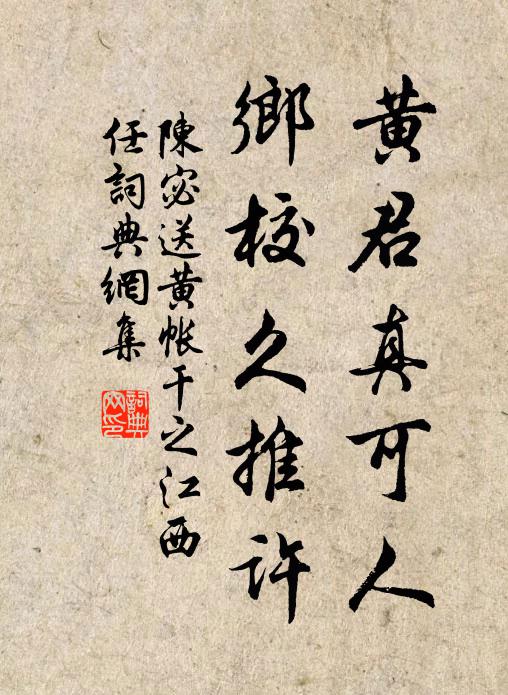 黄君真可人
鄉校久推許
陳宓送黄帳干之江西
任詞典網集
詞典網印